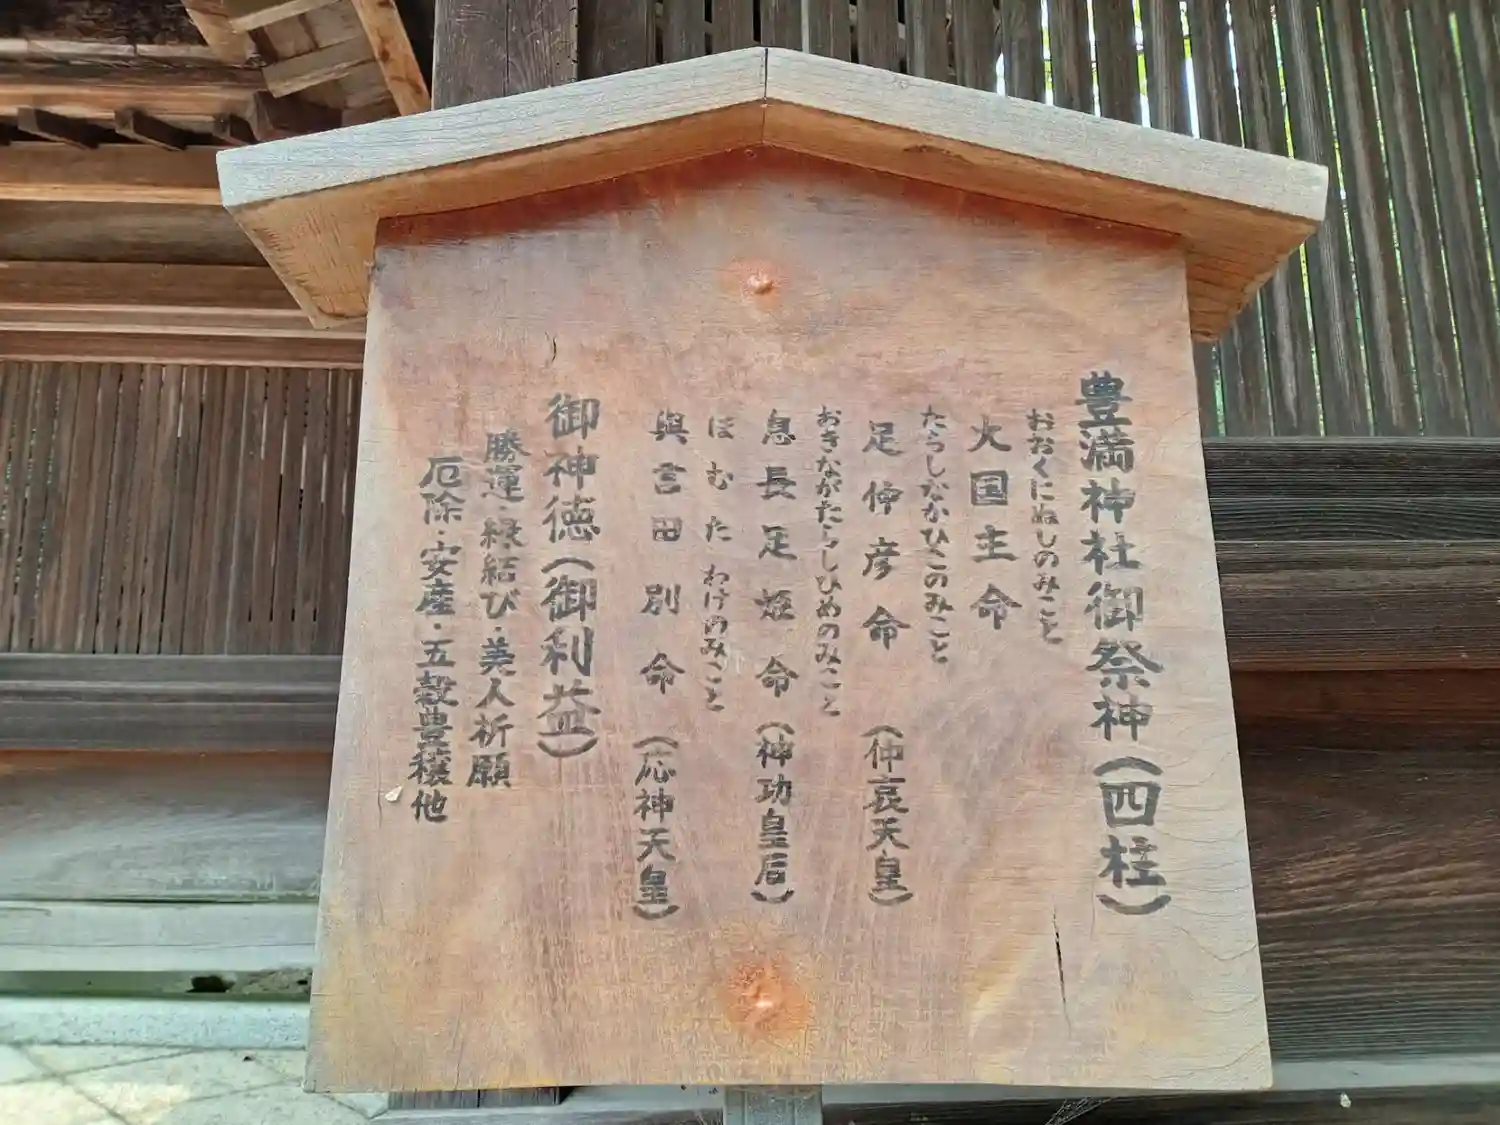 豊満神社御祭神(四柱)
おおくにぬしのみこと
大国主命
たらしなかひこのみこと
足仲彦命(仲哀天皇)
おきながたらしひめのみこと
息長足姫命(神功皇后)
ほむたわけのみこと
與言田別命(応神天皇)
御神徳(御利益)
勝運・縁結び・美人祈願
厄除・安産・五穀豊穣他